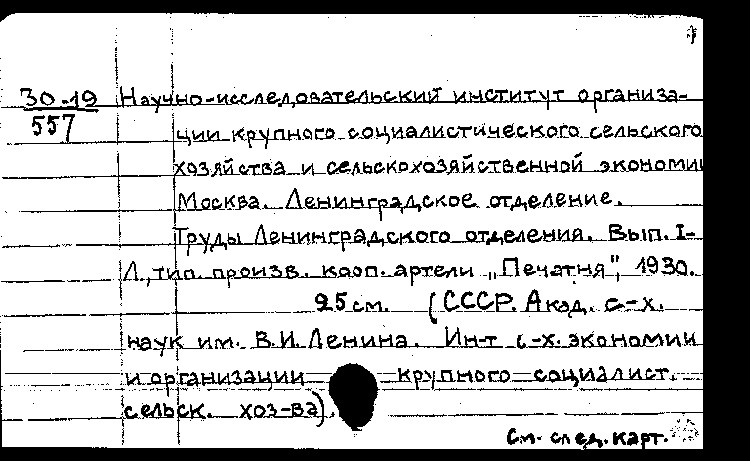 30-19
557
Научно-исследовательский институт организа-
ции крупного социалистического сельского
хозяйства и сельскохозяйственной экономии
Москва. Ленинградское отделение.
Труды Ленинградского отделения. Вып. I-
Л., тип. произв. кооп. артели „Печатня", 1930.
25 см. (СССР. Акад. с-х.
наук им. В.И. Ленина. Ин-т с-х. экономии
и организации крупного социалист.
сельск. хоз-ва).
См. след. карт.